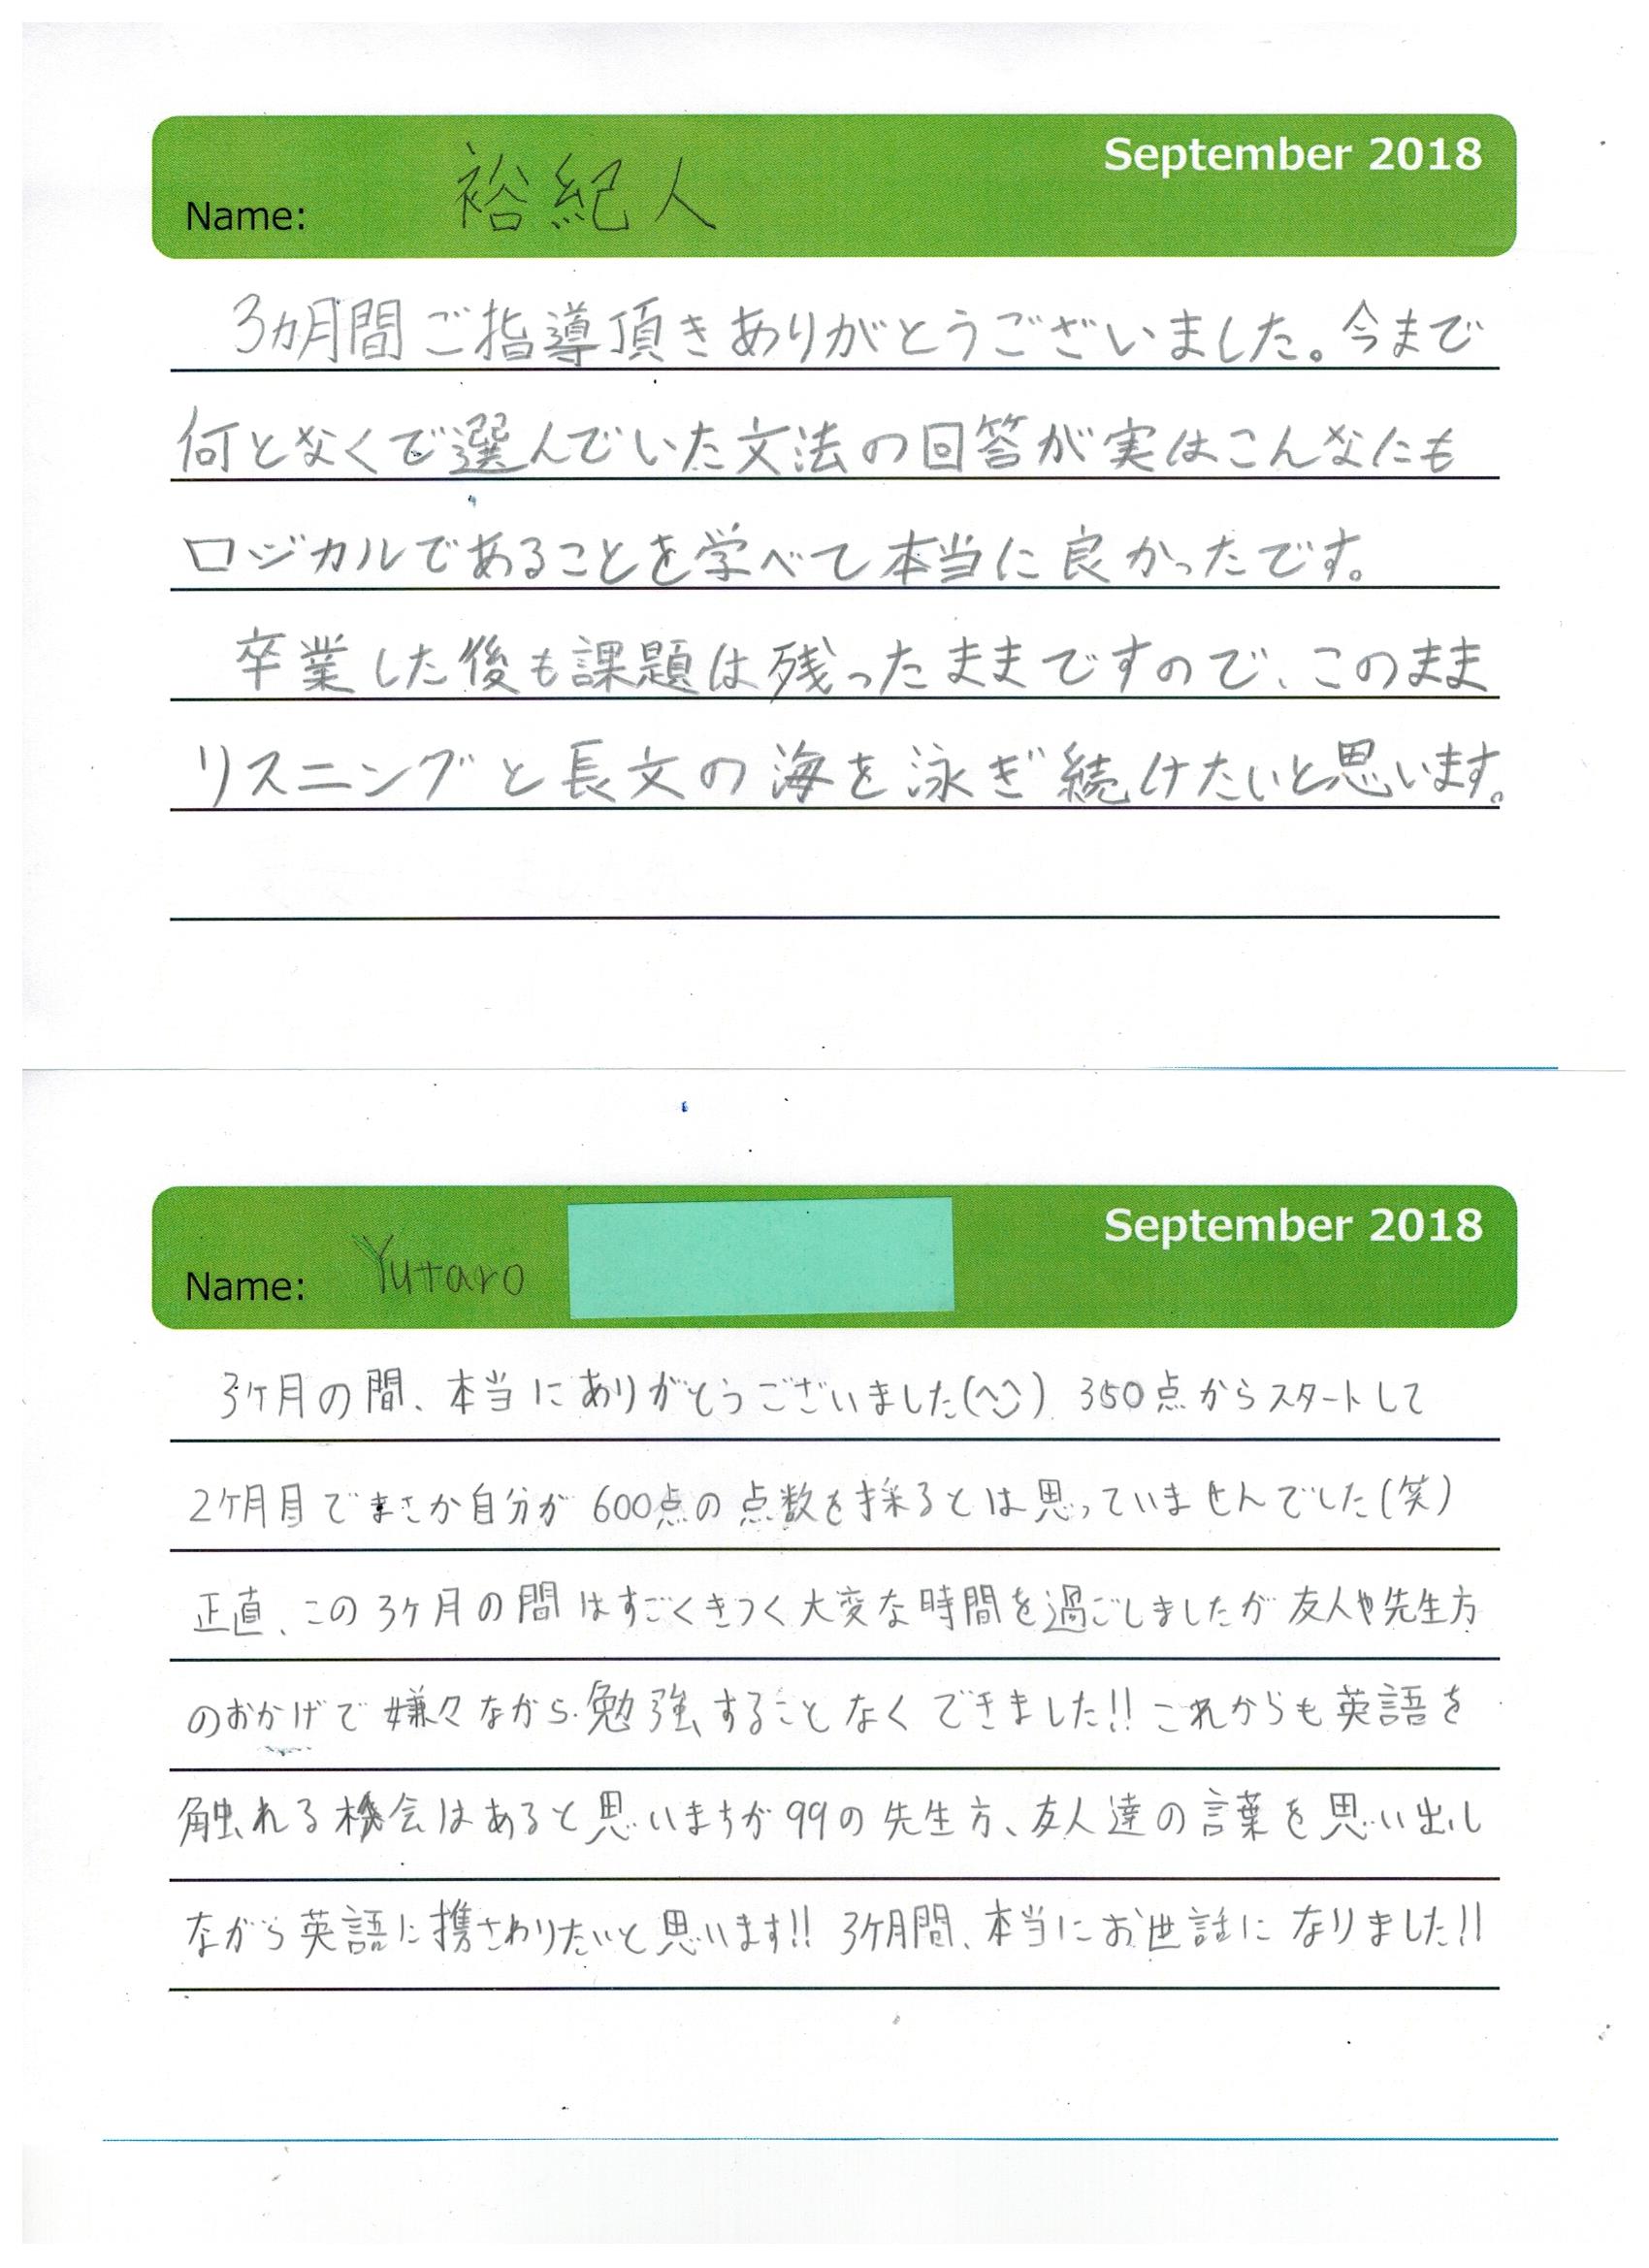 September 2018
Name: 裕紀人
3カ月間ご指導頂きありがとうございました。今まで
何となくで選んでいた文法の回答が実はこんなにも
ロジカルであることを学べて本当に良かったです。
卒業した後も課題は残ったままですので、このまま
リスニングと長文の海を泳ぎ続けたいと思います。
September 2018
Name: Yutaro
3ヶ月の間、本当にありがとうございました(^^) 350点からスタートして
2ヶ月目でまさか自分が600点の点数を採るとは思っていませんでした(笑)
正直、この3ヶ月の間はすごくきつく大変な時間を過ごしましたが友人や先生方
のおかげで嫌々ながら勉強することなくできました!! これからも英語を
触れる機会はあると思いますが99の先生方、友人達の言葉を思い出し
ながら英語に携さわりたいと思います!! 3ヶ月間、本当にお世話になりました!!